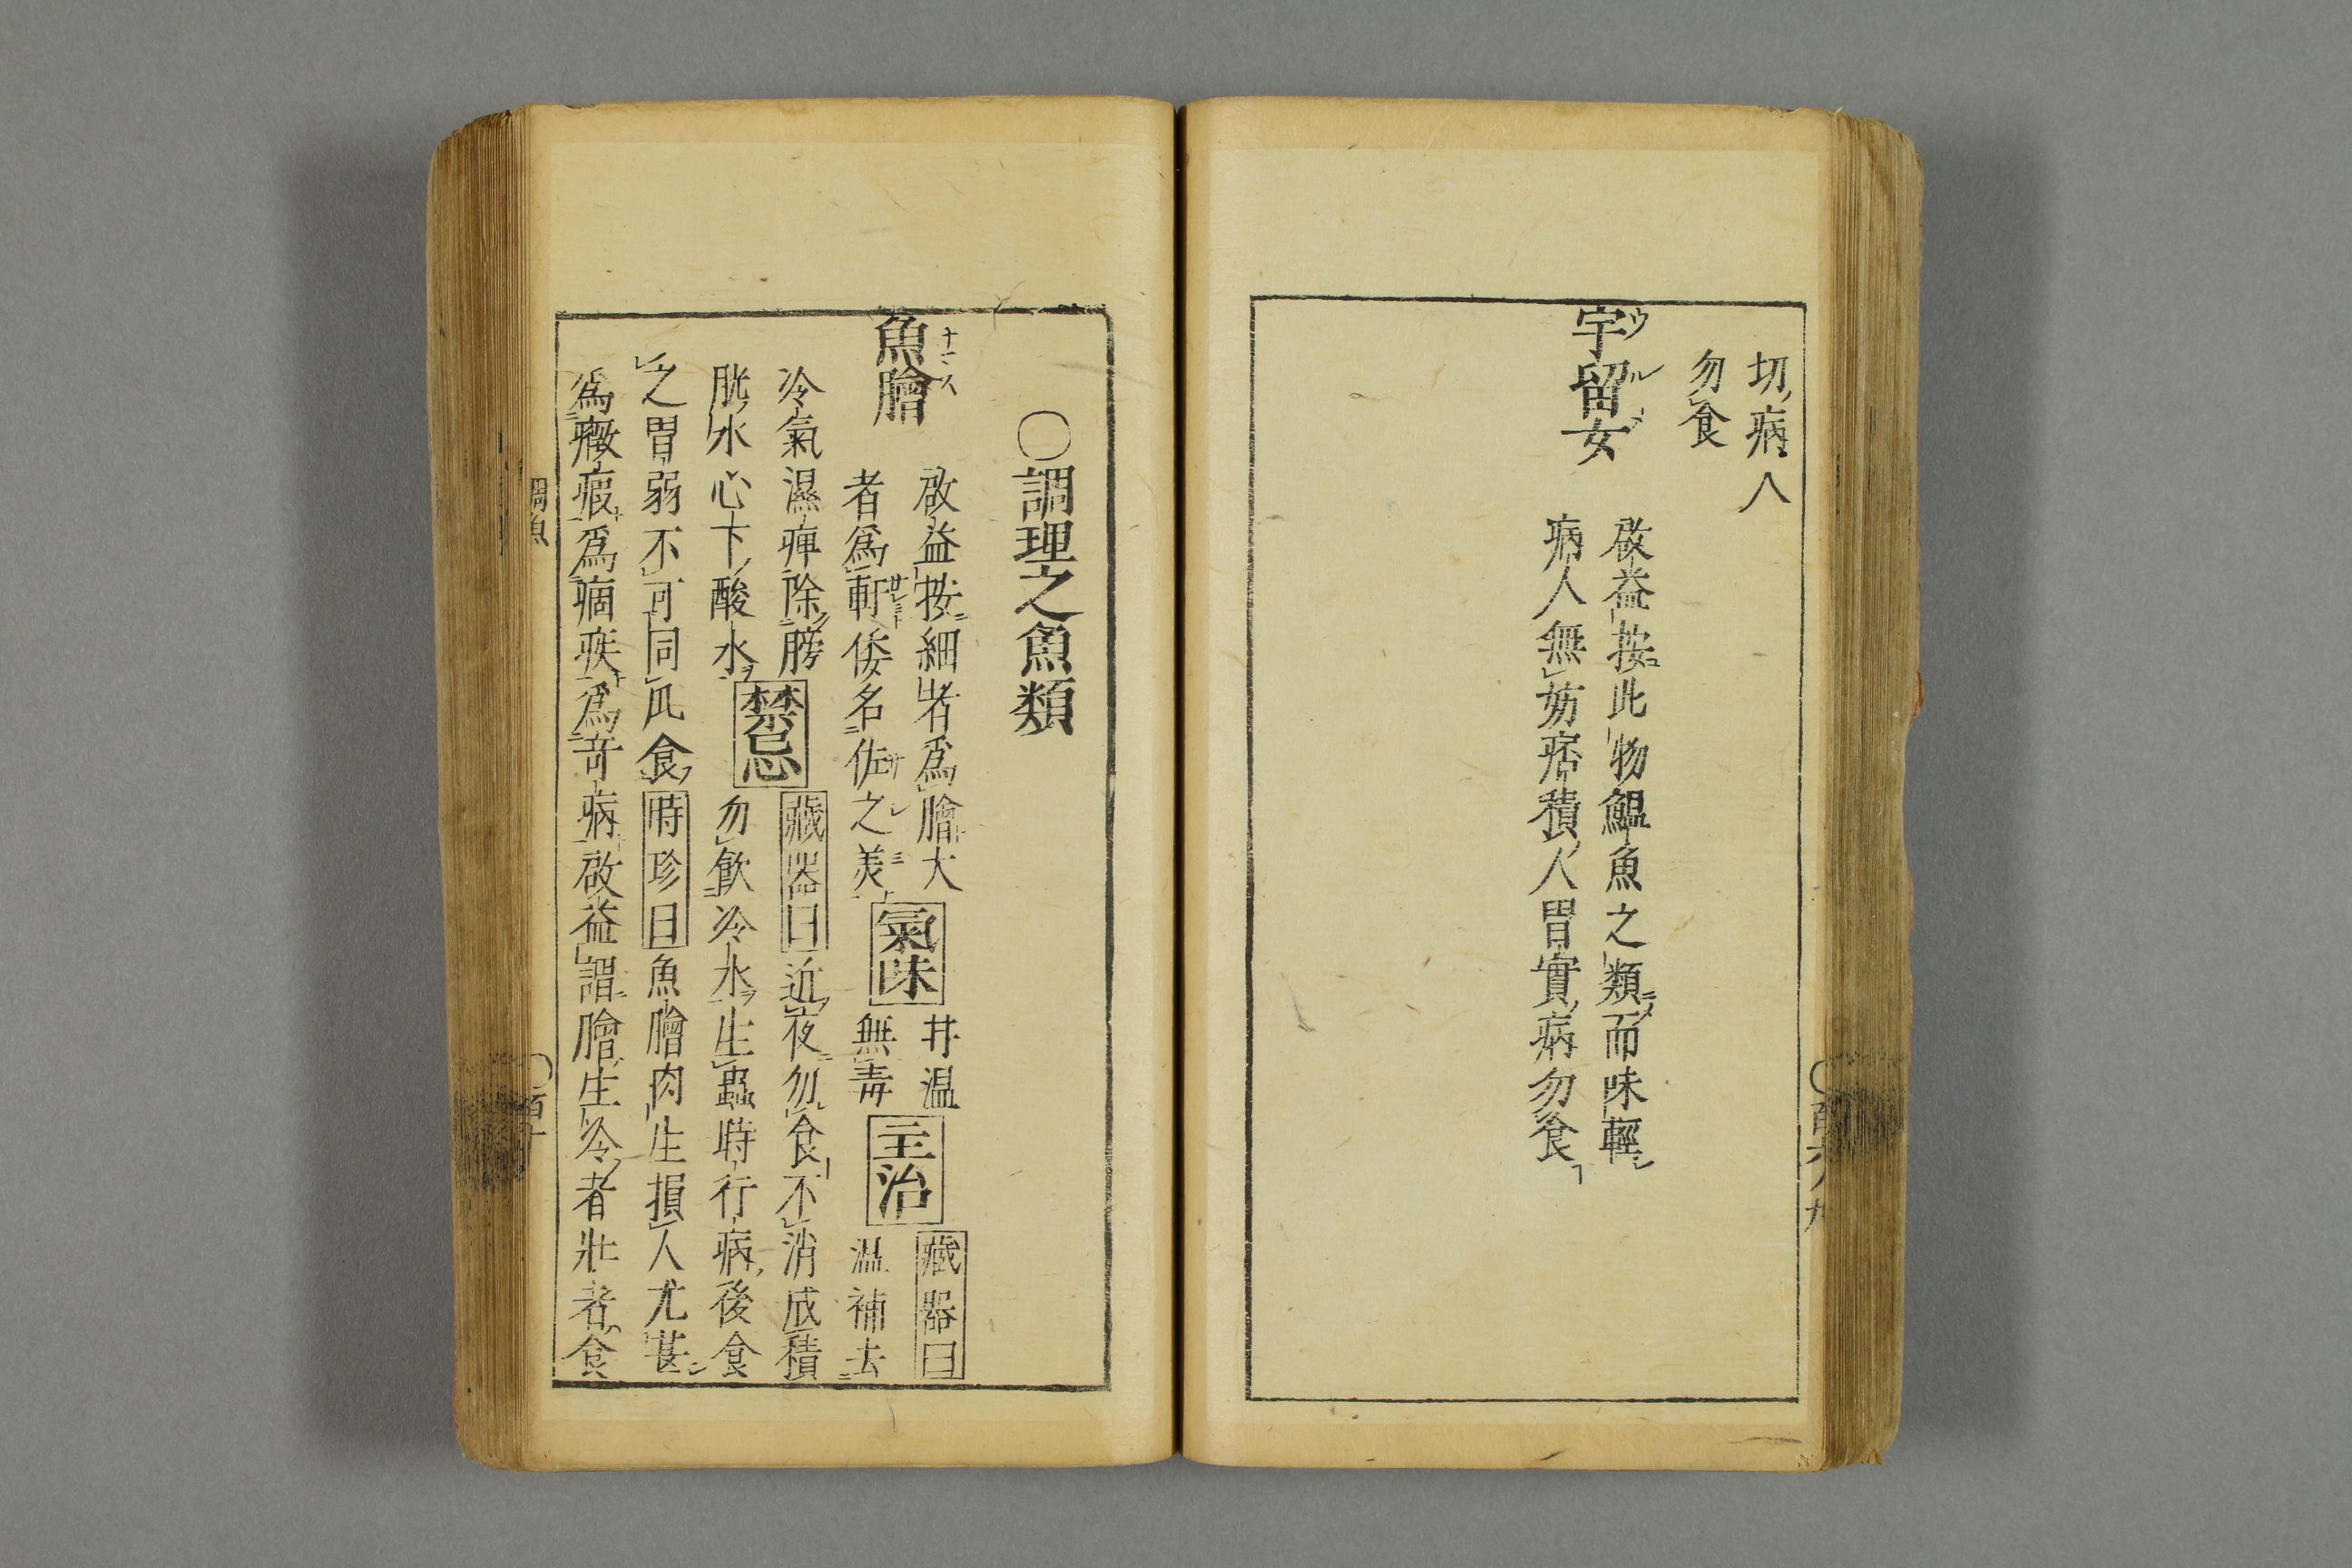 切病人
勿食
宇留女
啟益按此物鰛魚之類而味輕
病人無妨痞積人胃實病勿食
○調理之魚類
魚膾
啟益按細者為膾大
者為軒倭名佐之美
氣味
甘温
無毒
主治
藏器曰
温補去
冷氣濕痺除膀
胱水心下酸水
禁忌
藏器曰近夜勿食不消成積
勿飲冷水生蟲時行病後食
之胃弱不可同瓜食時珍曰魚膾肉生損人尤甚
為癥瘕為痼疾為奇病啟益謂膾生冷者壯者食
調魚